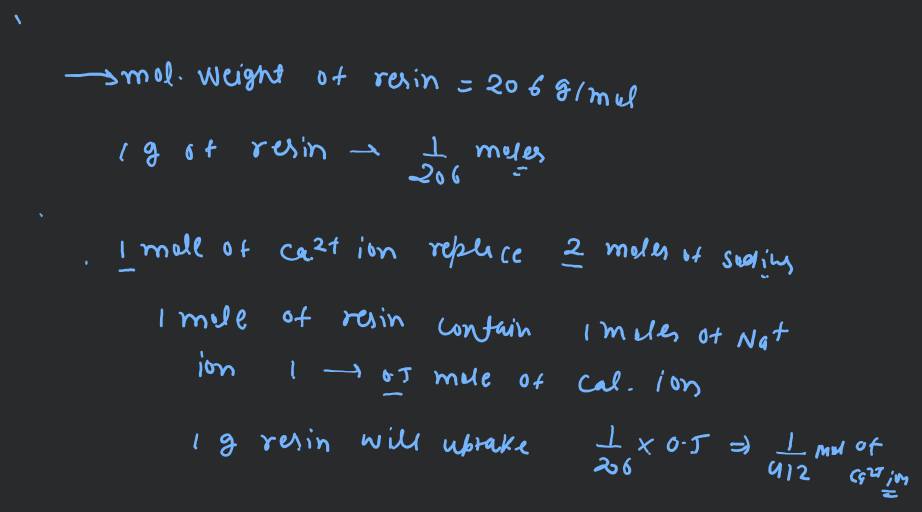 → mol. weight of resin = 206 g/mol
1 g of resin → 1/206 moles
1 mole of Ca2+ ion replace 2 moles of sodium
1 mole of resin contain 1 moles of Na+
ion 1 → 0.5 mole of cal. ion
1 g resin will uptake 1/206 × 0.5 ⇒ 1/412 mol of Ca2+ ion